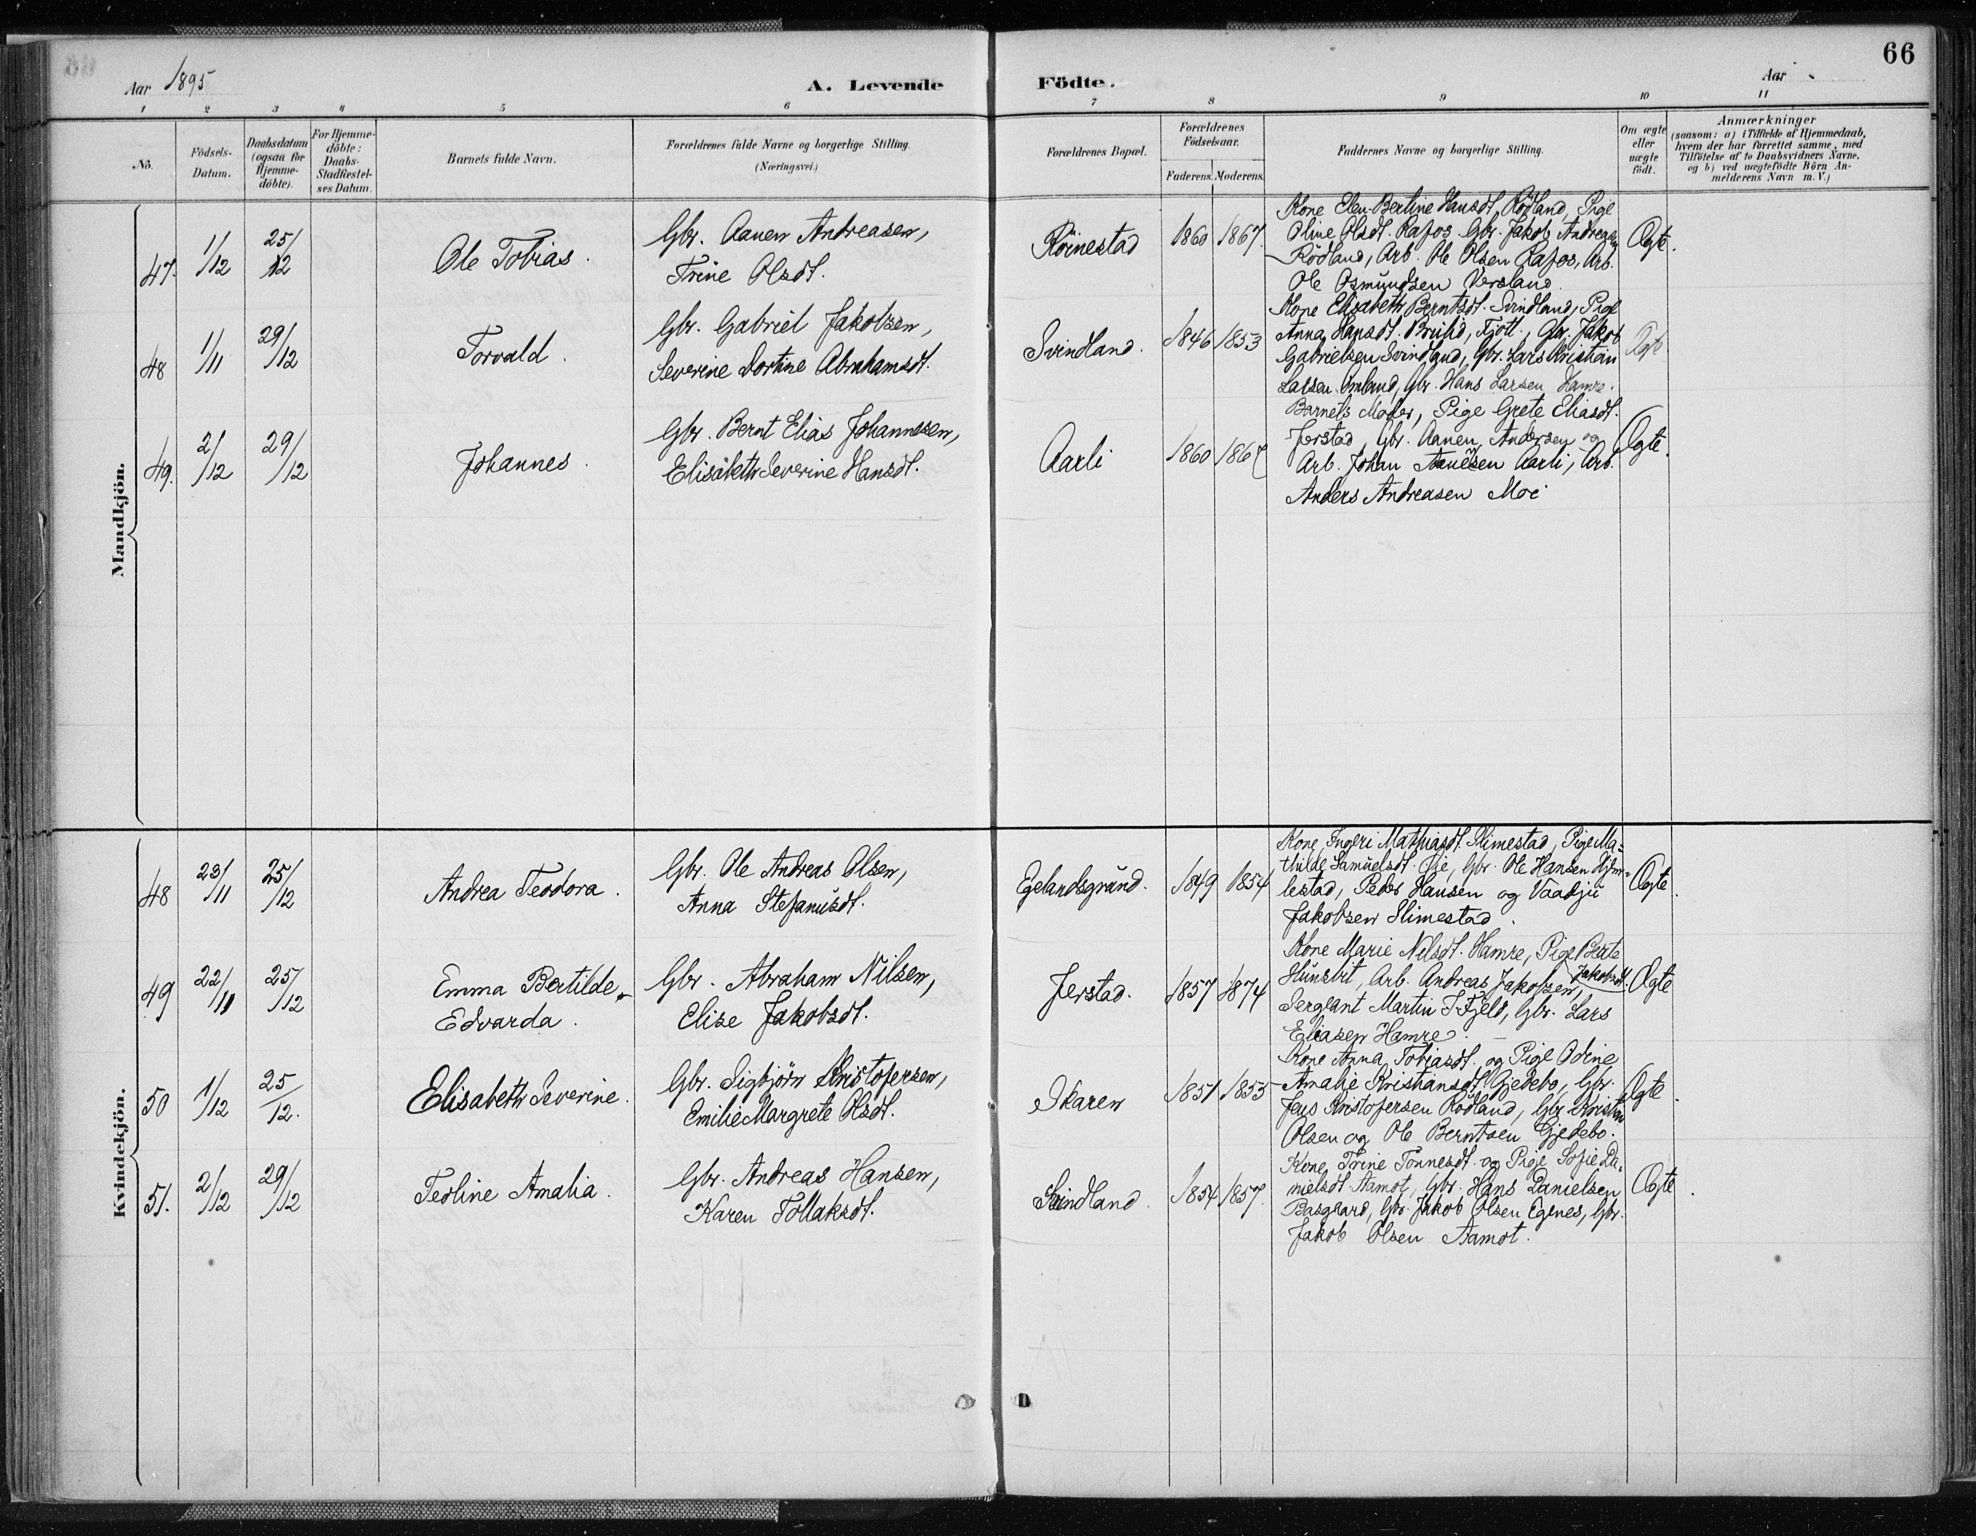 66
Aar 1895
A. Levende
Födte.
Aar
1 2 3 4 5 6 7 8 9 10 11
No.
Födsels-
Datum.
Daabsdatum
(ogsaa for
Hjemme-
döbte).
For Hjemme-
döbte:
Daabs-
Stadfæstel-
ses Datum.
Barnets fulde Navn.
Forældrenes fulde Navne og borgerlige Stilling.
(Næringsvei.)
Forældrenes Bopæl.
Forældrenes
Födselsaar.
Faderens. Moderens.
Faddernes Navne og borgerlige Stilling.
Om ægte
eller
uægte
födt.
Anmærkninger
(saasom: a) i Tilfælde af Hjemmedaab,
hvem der har forrettet samme, med
Tilföielse af to Daabsvidners Navne,
og b) ved uægtefödte Börn An-
melderens Navn m. V.)
Mandkjön.
47. 1/12 25/12 Ole Tobias.
Gbr. Aanen Andreasen,
Trine Olsdt.
Röinestad 1860 1867.
Kone Elen Berline Hansdt. Rödland, Pige
Oline Olsdt. Rafos, Gbr. Jakob Andreasen
Rödland, Arb. Ole Olsen Rafos, Arb.
Ole Osmundsen Versland.
Ægte.
48 1/11 29/12 Torvald.
Gbr. Gabriel Jakobsen,
Severine Dortine Abrahamsdt.
Svindland. 1846 1853
Kone Elisabeth Berntsdt. Svindland, Pige
Anna Hansdt. Fjotl., Gbr. Jakob
Gabrielsen Svindland, Gbr. Lars Kristian
Larsen Omland, Gbr. Hans Larsen Hamre.
Ægte
49. 2/12 29/12 Johannes.
Gbr. Bernt Elias Johannesen,
Elisabeth Severine Hansdt.
Aarli 1860 1867
Barnets Moder, Pige Grete Eliasdt.
Jerstad, Gbr. Aanen Andersen og
Arb. Johan Aanensen Aarli, Arb.
Anders Andreasen Moi
Ægte.
Kvindekjön.
48 23/11 25/12 Andrea Teodora.
Gbr. Ole Andreas Olsen,
Anna Stefanusdt.
Egelandsgrund. 1849 1854
Kone Ingeri Mathiasdt. Slimestad, Pige Ma-
thilde Samuelsdt. Øie, Gbr. Ole Hansen
lestad, Peder Hansen og Vaadjü
Jakobsen Slimestad.
Ægte.
49 22/11 25/12 Emma Bertilde
Edvarda.
Gbr. Abraham Nilsen,
Elise Jakobsdt.
Jerstad. 1857 1874
Kone Marie Nilsdt. Hamre, Pige Berte
Jakobsdt.
Hunsbit, Arb. Andreas Jakobsen,
Sergeant Martin T. Fjeld, Gbr. Lars
Eliasen Hamre.
Ægte
50 1/12 25/12. Elisabeth Severine.
Gbr. Sigbjörn Kristofersen,
Emilie Margrete Olsdt.
Skaren 1851 1855
Kone Anna Tobiasdt. og Pige Odine
Amalie Kristiansdt. Gjedebo, Gbr.
Jens Kristofersen Rödland, Gbr. Kristian
Olsen og Ole Berntsen Gjedebo.
Ægte.
51. 2/12 29/12 Teoline Amalia.
Gbr. Andreas Hansen,
Karen Tollaksdt.
Svindland. 1854 1857.
Kone Trine Tönnesdt. og Pige Sofie Da-
nielsdt. Aamot, Gbr. Hans Danielsen
Basgaard, Gbr. Jakob Olsen Egenes, Gbr.
Jakob Olsen Aamot.
Ægte.